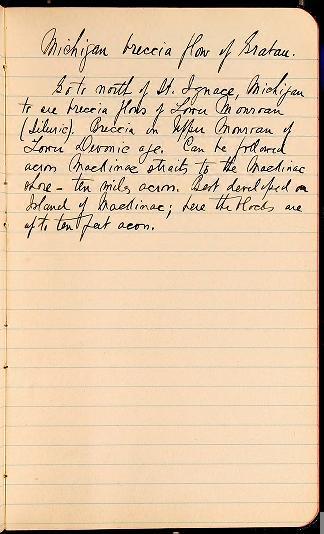 Michigan breccia flow of Grabau.
Go to north of St. Ignace, Michigan
to see breccia flows of Lower Monroan
(Siluric). Breccia in Upper Monroan of
Lower Devonic age. Can be followed
across Mackinac straits to the Mackinac
shore - ten miles across. Best developed on
Island of Mackinac; here the blocks are
up to ten feet across.